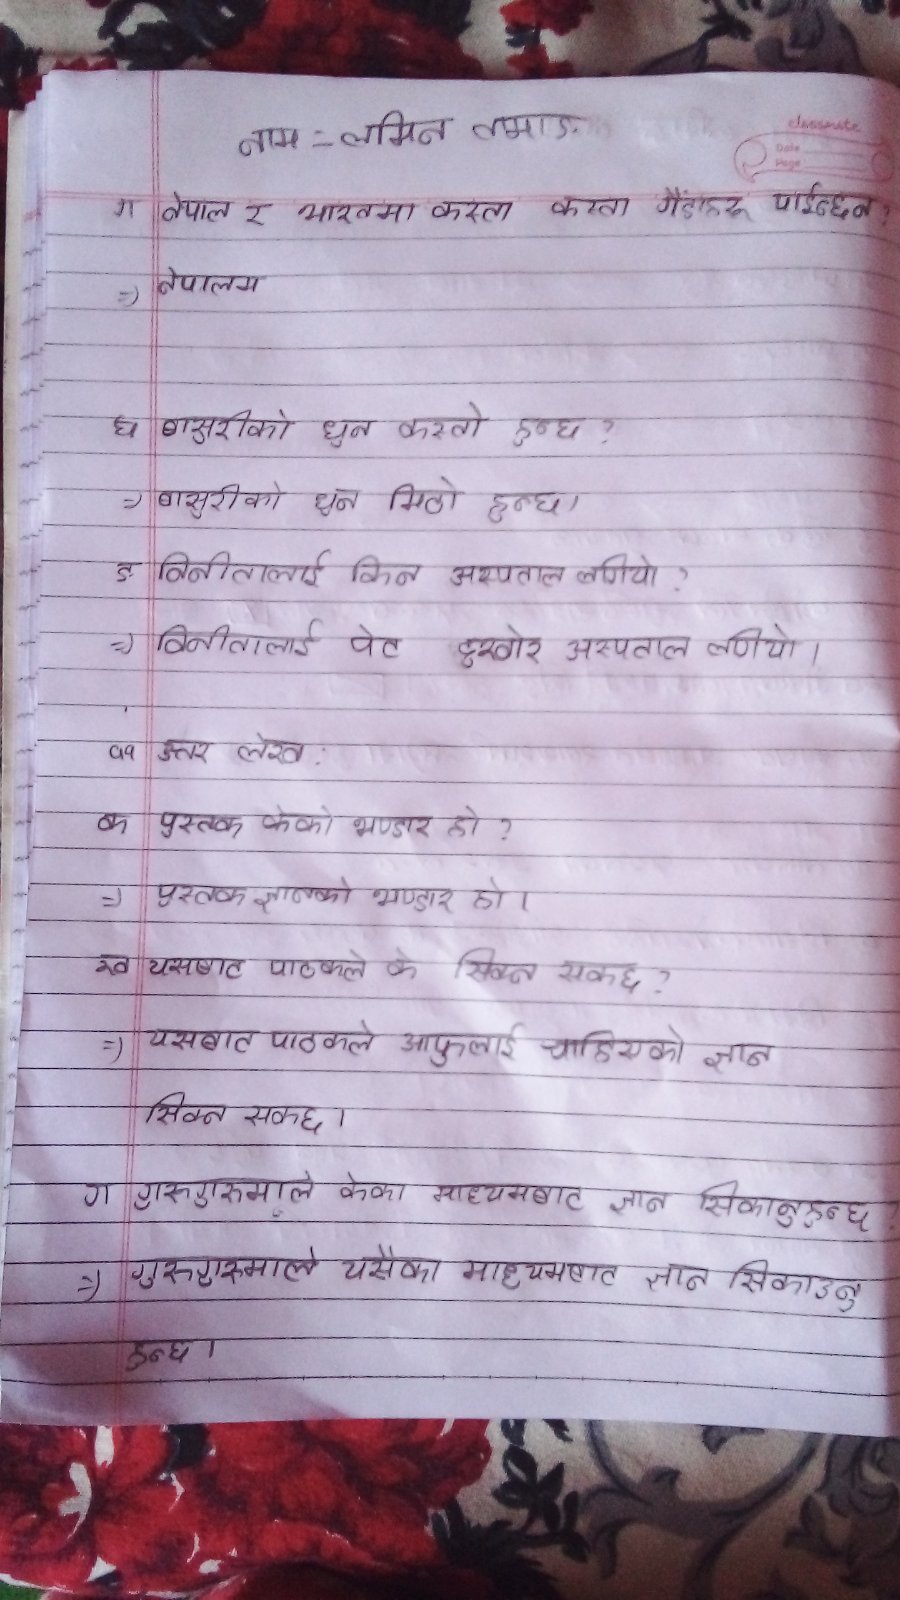 नाम = लमिन तामाङ
classmate
Date
Page
ग नेपाल र भारतमा कस्ता कस्ता गैंडाहरू पाईन्छन ?
=) नेपालम
घ बासुरीको धुन कस्तो हुन्छ ?
=) बासुरीको धुन मिठो हुन्छ।
ङ विनीतालाई किन अस्पताल लगियो ?
=) विनीतालाई पेट दुखेर अस्पताल लगियो ।
उत्तर लेख :
क पुस्तक केको भण्डार हो ?
=) पुस्तक ज्ञानको भण्डार हो ।
ख यसबाट पाठकले के सिक्न सक्छ ?
=) यसबाट पाठकले आफुलाई चाहिएको ज्ञान
सिक्न सक्छ ।
ग गुरुगुरुमाले केका माध्यमबाट ज्ञान सिकानुहुन्छ ?
=) गुरुगुरुमाले यसैका माध्यमबाट ज्ञान सिकाउनु
हुन्छ ।